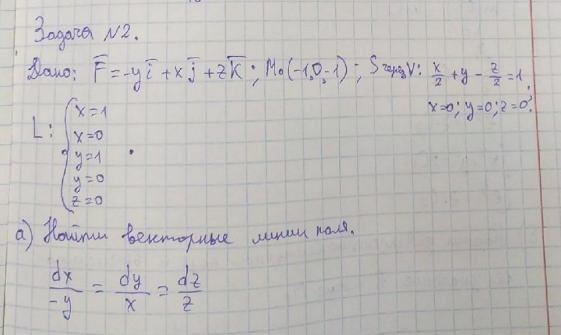 Задача №2.
Дано: F̅ = -y i̅ + x j̅ + z k̅; M₀(-1,0,-1); S огр. V: x/2 + y - z/2 = 1,
x=0; y=0; z=0;
L: { x=1
x=0
y=1
y=0
z=0
а) Найти векторные линии поля.
dx/-y = dy/x = dz/z